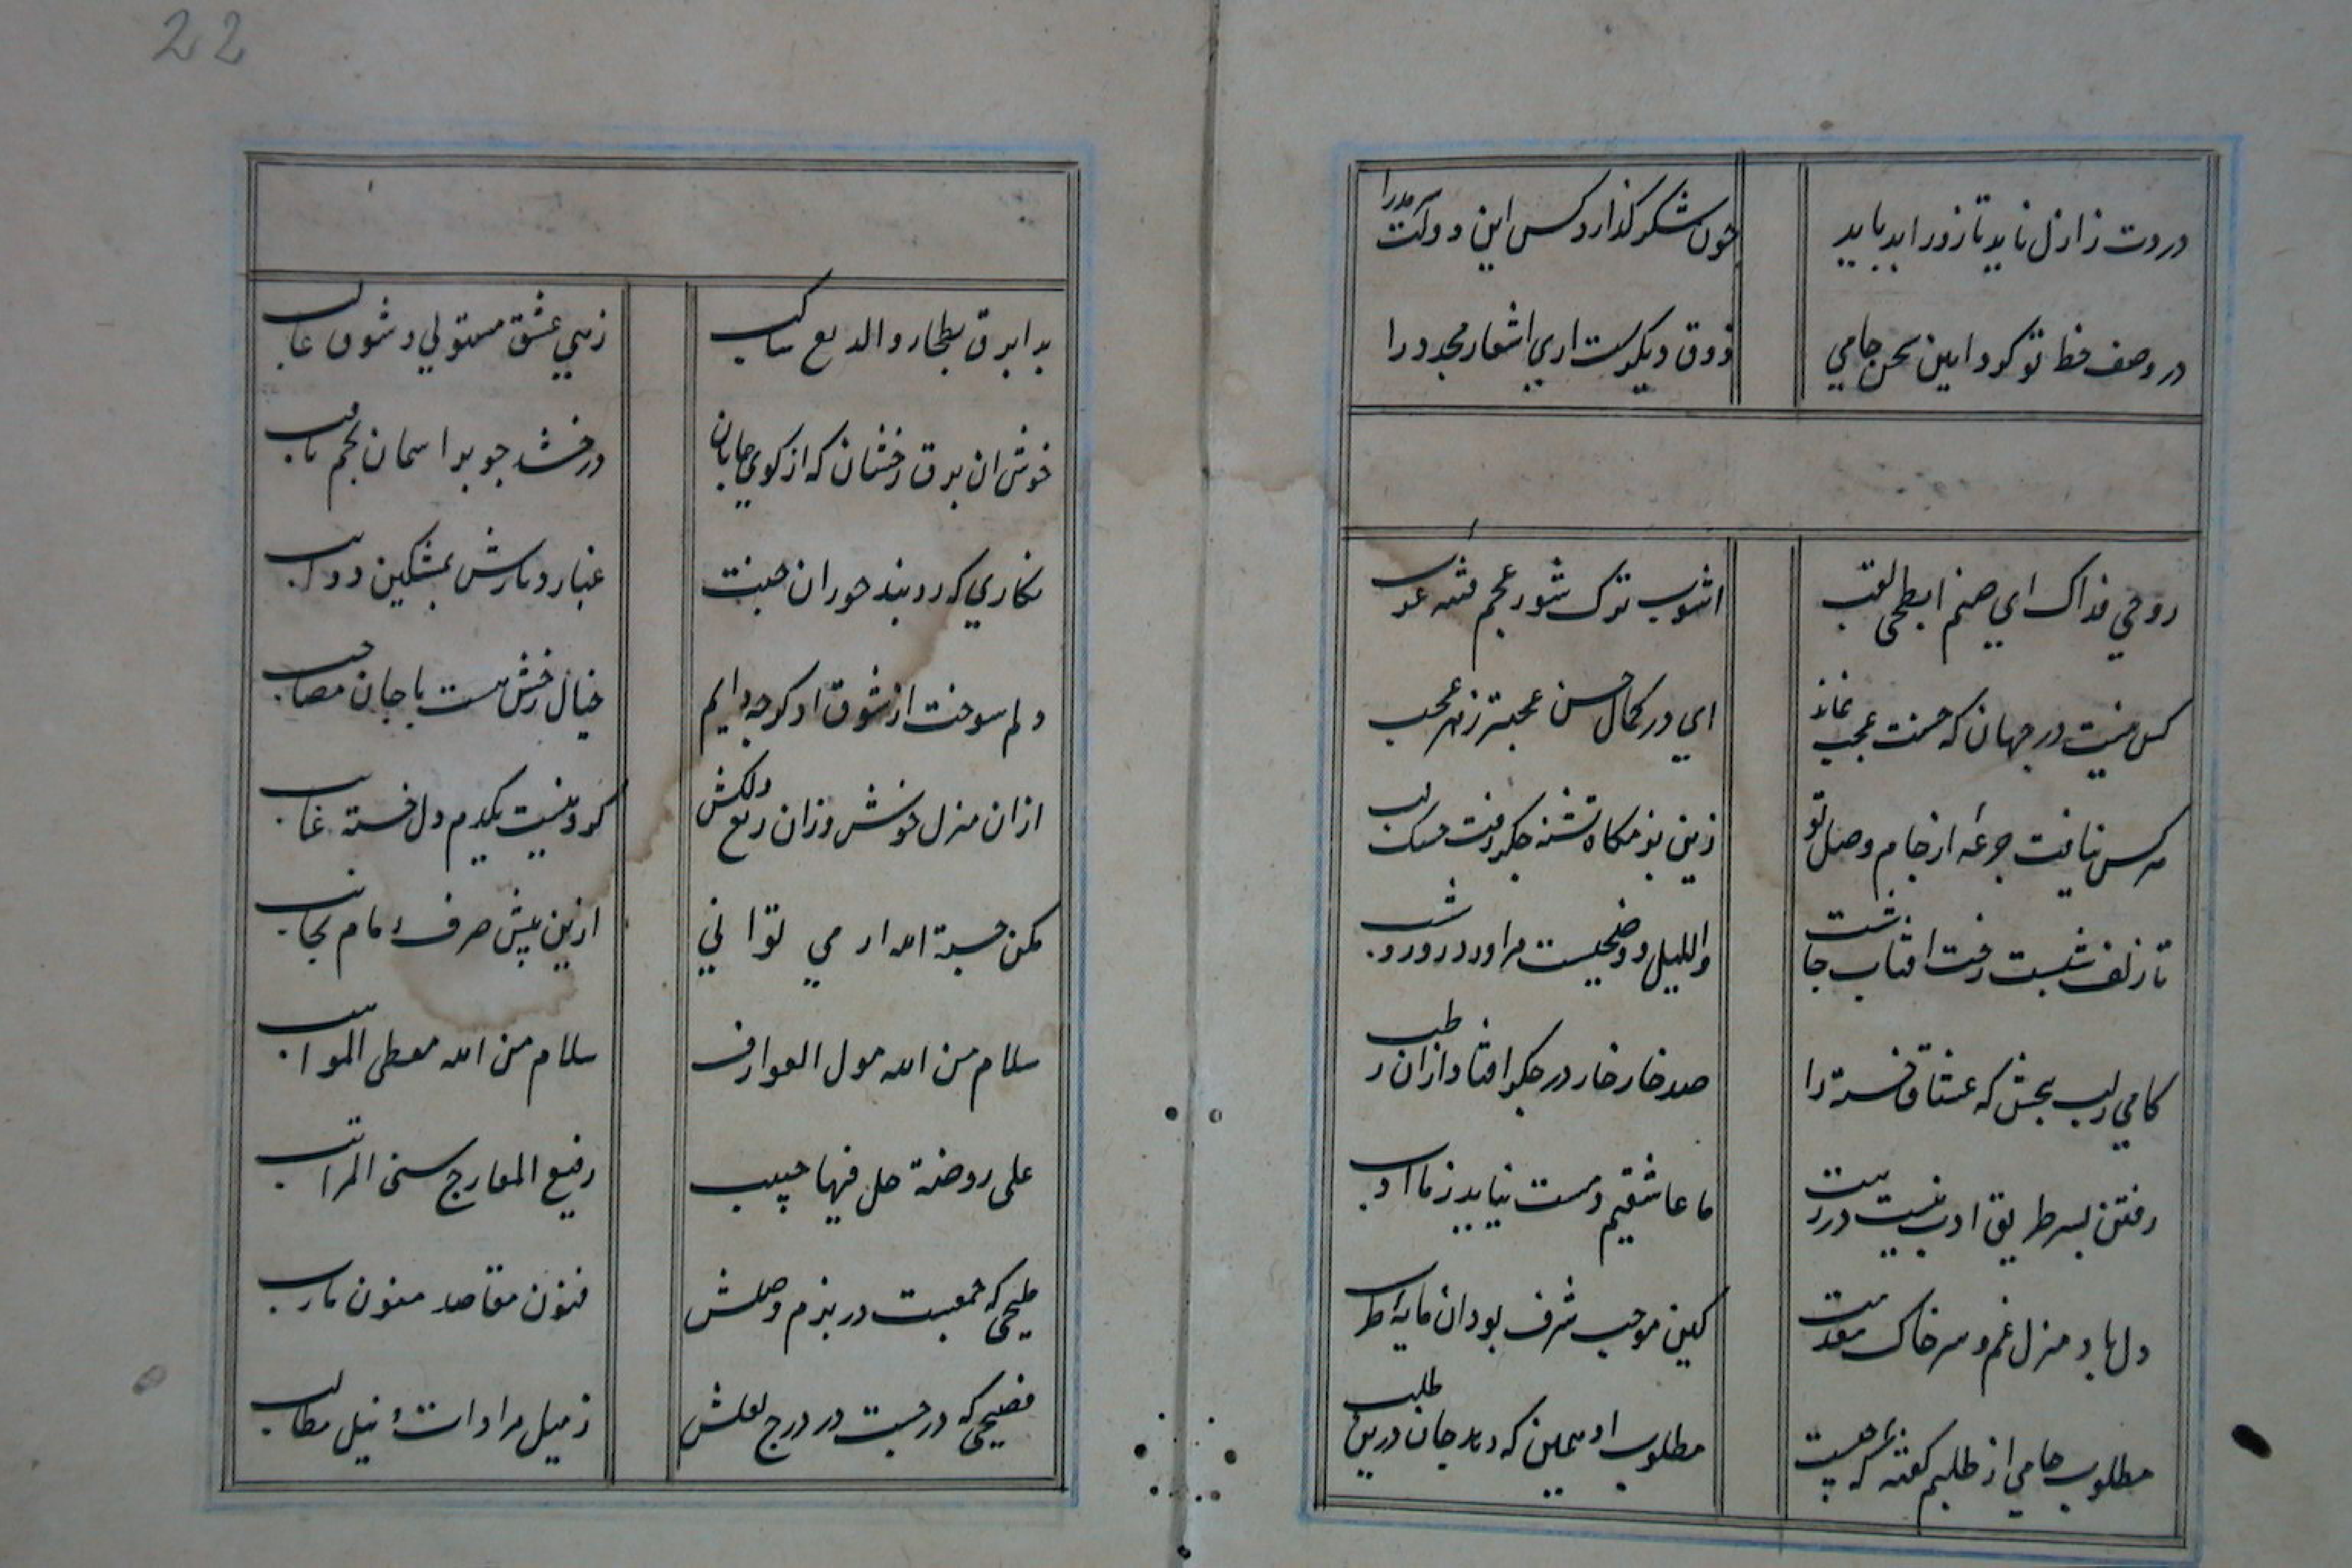 22
دردت ز ازل ناید تا روز ابد باید چون شکر کذارد کس این دولت سرمدرا
در وصف خط تو کرد این سخن جامی ذوق دیکرست اری اشعار مجدد را
روحی فداک ای صنم ابطحی لقب اشوب ترک شور عجم فتنه عرب
کس نیست در جهان که حسنت عجب نماند ای در کمال حسن عجبتر ز هر عجب
هر کس نیافت جرعه از جام وصل تو زین بزمکاه تشنه جکر رفت خشک لب
تا زلف شبست رخت افتاب چاشت واللیل وضحیست مرا ورد روز و شب
کامی ز لب بخش که عشاق خسته را صد خار خار در جکر افتاد ازان رطب
رفتن بسر طریق ادب نیست در رهت ما عاشقیم و مست نیاید ز ما ادب
دل باد منزل غم و سر خاک مقدمت کین موجب شرف بود ان مایه طرب
مطلوب جامی از طلبم کفته که چیست مطلوب او همین که دهد جان درین طلب
بدا برق بطحا والدمع ساکب زهی عشق مستولی و شوق غالب
خوش ان برق رخشان که از کوی جانان درخشد چو بر اسمان نجم ثاقب
نکاری که روبند حوران جنت غبار دیارش بمشکین ذوایب
دلم سوخت از شوق او کرچه دایم خیال رخش هست با جان مصاحب
ازان منزل خوش وزان ربع دلکش که او نیست یکدم دل خسته غایب
مکن حسبة الله ار می توانی ازین بیش صرف زمام نجایب
سلام من الله مول العوارف سلام من الله معطی المواهب
علی روضة حل فیها حبیب رفیع المعارج سنی المراتب
ملیحی که جمعست در بزم وصلش فنون مقاصد صنون مارب
فصیحی که درجست در درج لعلش ز میل مرادات نیل مطالب